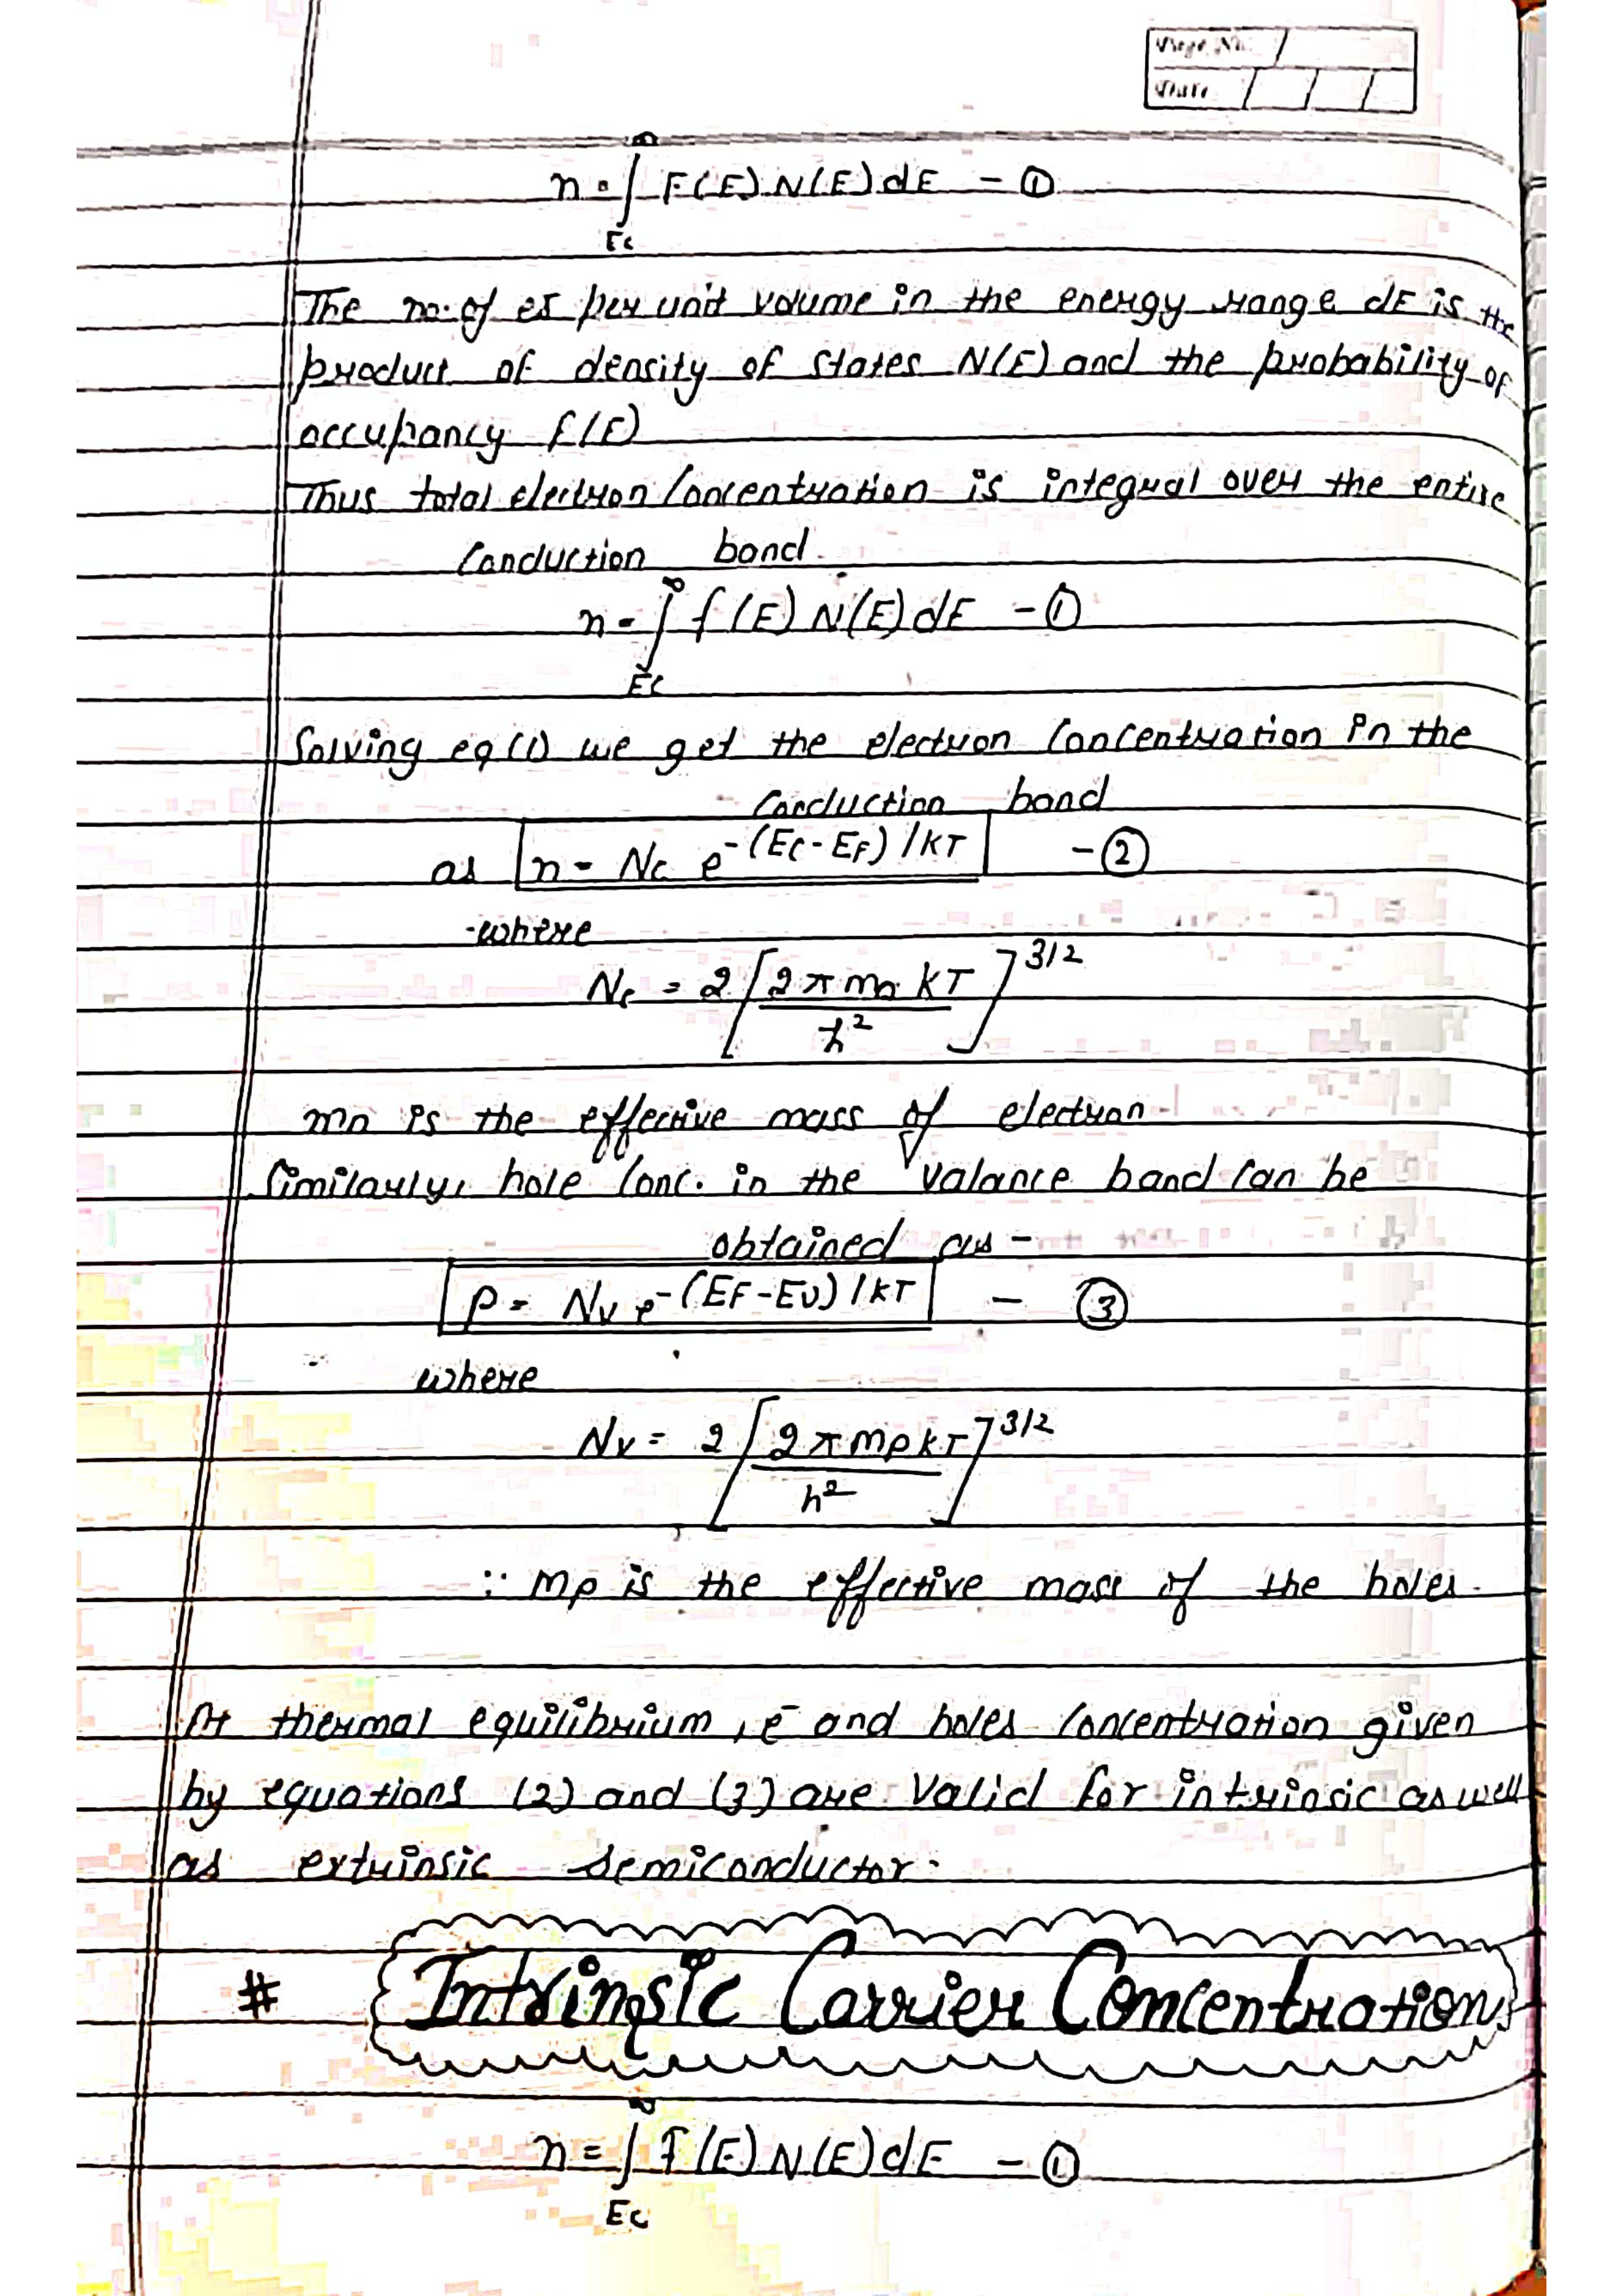 Page No.
Date
n = ∫_{Ec}^{∞} F(E) N(E) dE - ①
The no. of es per unit volume in the energy range dE is the
product of density of states N(E) and the probability of
occupancy f(E)
Thus total electron Concentration is integral over the entire
Conduction band.
n = ∫_{Ec}^{∞} f(E) N(E) dE - ①
Solving eq (1) we get the electron Concentration in the
Conduction band
as n = Nc e^{-(Ec-EF)/KT} - ②
where
Nc = 2 [2πmn KT / h²]^{3/2}
mn is the effective mass of electron
Similarly, hole Conc. in the valance band Can be
obtained as -
p = Nv e^{-(EF-EV)/KT} - ③
where
Nv = 2 [2πmpkT / h²]^{3/2}
∵ mp is the effective mass of the holes.
At thermal equilibrium, e⁻ and holes Concentration given
by equations (2) and (3) are Valid for intrinsic as well
as extrinsic semiconductor.
# Intrinsic Carrier Concentration
n = ∫_{Ec}^{∞} f(E) N(E) dE - ①